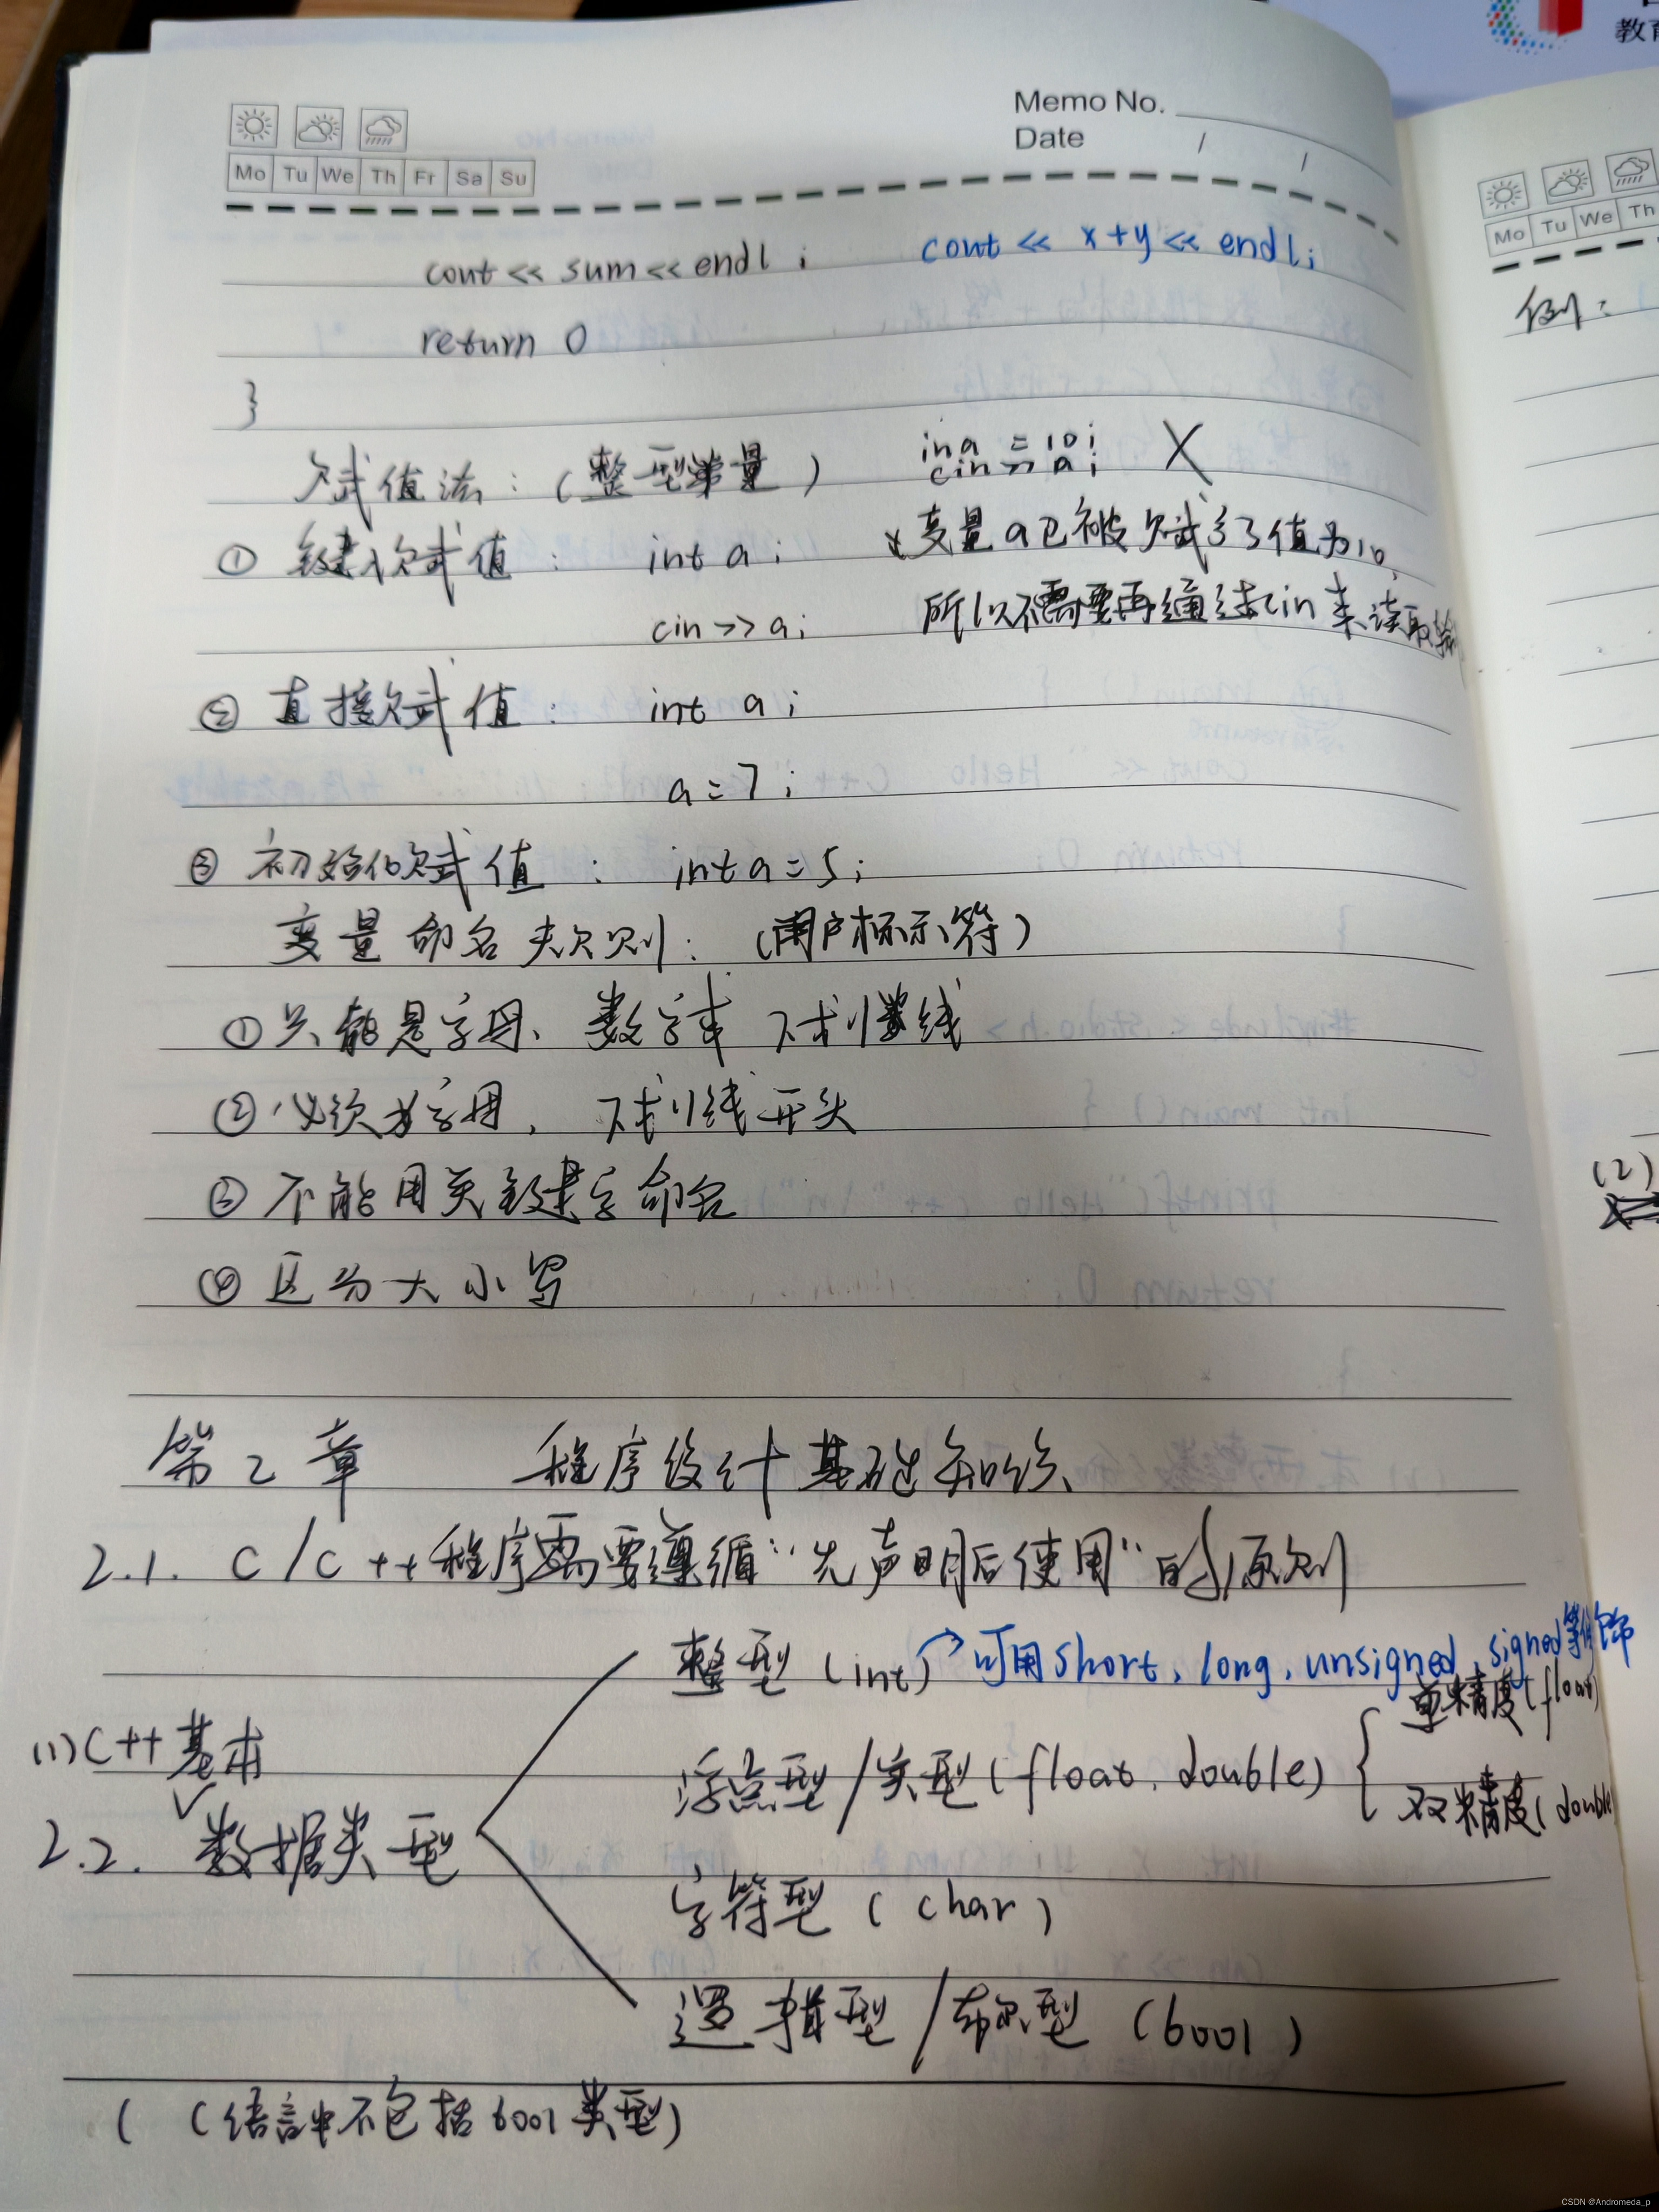 Memo No.
Date / /
Mo Tu We Th Fr Sa Su
cout << sum << endl; cout << x+y << endl;
return 0
}
赋值法:(整型常量) ina = 10; ×
cin >> a;
① 键入赋值: int a; 变量a已被赋予了值为10,
cin >> a; 所以不需要再通过cin来读取输
② 直接赋值: int a;
a = 7;
③ 初始化赋值: int a = 5;
变量命名规则:(用户标示符)
① 只能是字母、数字或下划线
② 必须为字母,下划线开头
③ 不能用关键字命名
④ 区分大小写
第2章 程序设计基础知识
2.1. C/C++程序需要遵循“先声明后使用”的原则
整型(int) 可用short、long、unsigned、signed等修饰
(1)C++基本
2.2. 数据类型
浮点型/实型(float、double) { 单精度(float)
双精度(double
字符型(char)
逻辑型/布尔型(bool)
(C语言中不包括bool类型)
教育
Mo Tu We Th
例:
(2)
CSDN @Andromeda_p